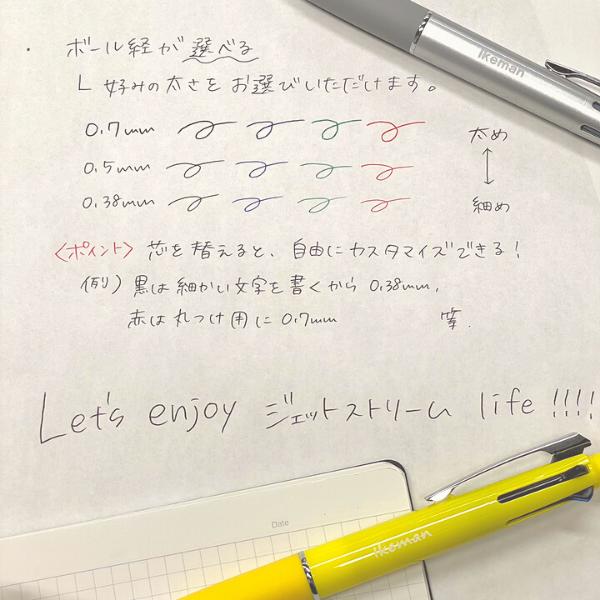 Ikeman
・ボール経が選べる
└ 好みの太さをお選びいただけます。
0.7mm 太め
0.5mm
0.38mm 細め
〈ポイント〉芯を替えると、自由にカスタマイズできる!
例) 黒は細かい文字を書くから 0.38mm,
赤は丸つけ用に 0.7mm 等.
Let's enjoy ジェットストリーム life !!!!
Date
ikeman